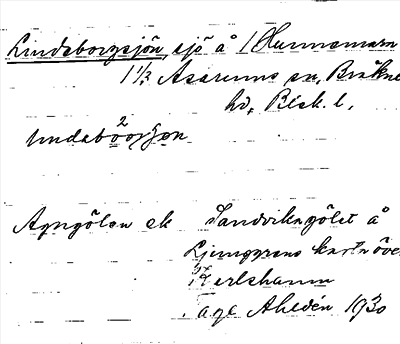 Lindeborgsjön, sjö å 1 Hunnamåla
1 1/3 Asarums sn, Bräkne
hd, Blek. l.
lindəbö2orʃən
Agngölen el. Sandviksgölet å
Ljunggrens karta över
Karlshamn
Åge Ahldén 1930